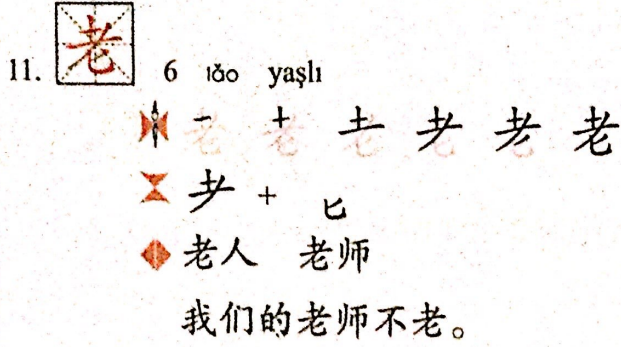 11. 老 6 lǎo yaşlı
一 十 土 耂 耂 老
耂 + 匕
老人 老师
我们的老师不老。